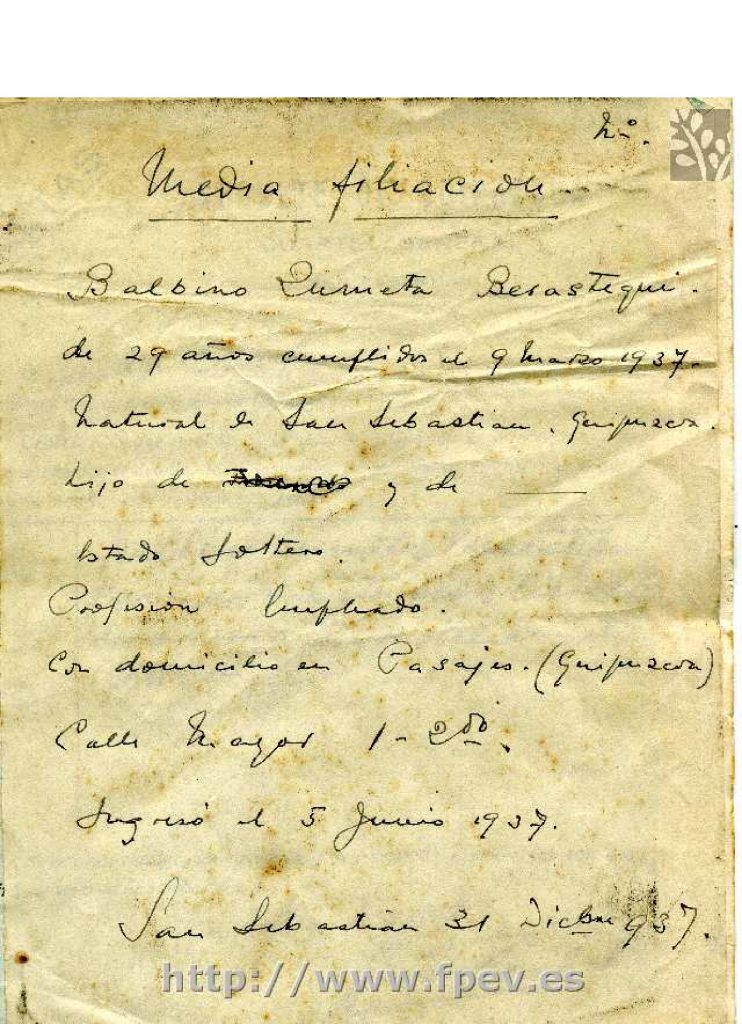 Nº.
Media filiación.
Balbino Zumeta Berastegui.
de 29 años cumplidos el 9 Marzo 1937.
Natural de San Sebastian. Guipuzcoa.
hijo de y de ___
Estado Soltero.
Profesion Empleado.
Con domicilio en Pasajes. (Guipuzcoa)
Calle Mayor 1-2do.
Ingresó el 5 Junio 1937.
San Sebastian 31 Dicbre 937.
http://www.fpev.es